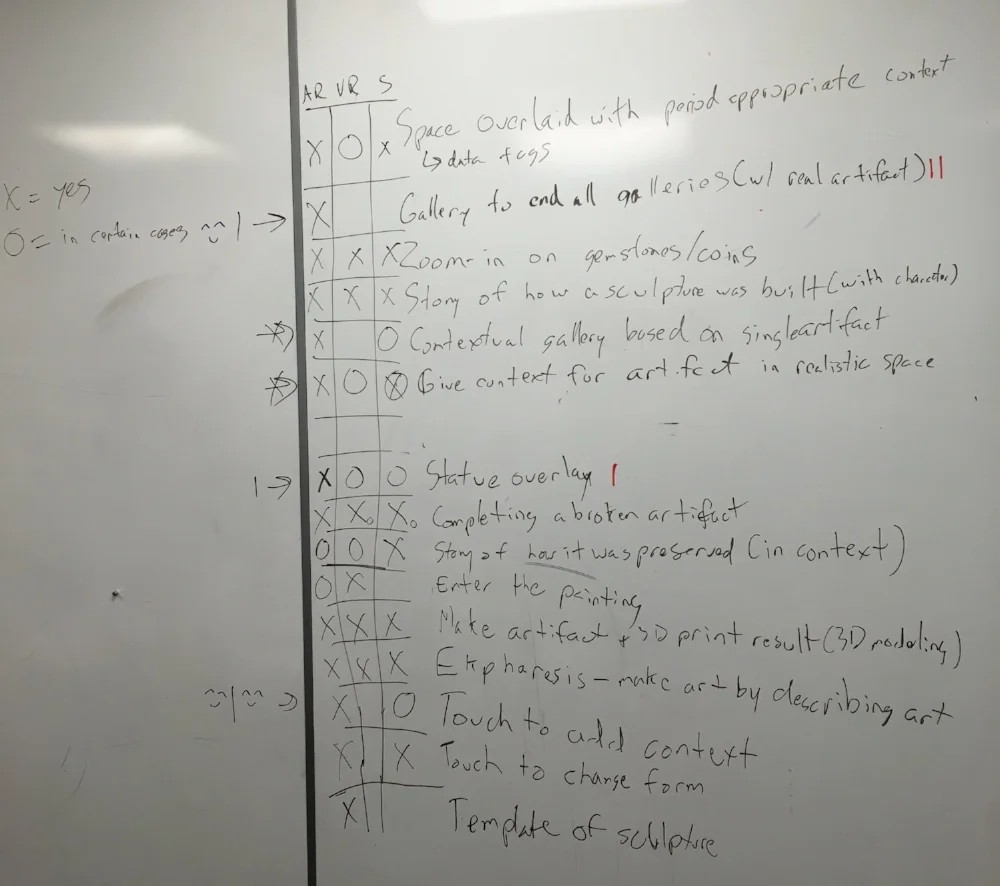 AR VR S
X O X Space overlaid with period appropriate context
↳ data tags
X = yes
O = in certain cases
| → X Gallery to end all galleries (w/ real artifact) ||
X X X Zoom-in on gemstones/coins
X X X Story of how a sculpture was built (with character)
X O Contextual gallery based on single artifact
X O X Give context for artifact in realistic space
| → X O O Statue overlay |
X X X Completing a broken artifact
O O X Story of how it was preserved (in context)
O X Enter the painting
X X X Make artifact + 3D print result (3D modeling)
X X X Ekpharesis - make art by describing art
| → X O Touch to add context
X X Touch to change form
X Template of sculpture